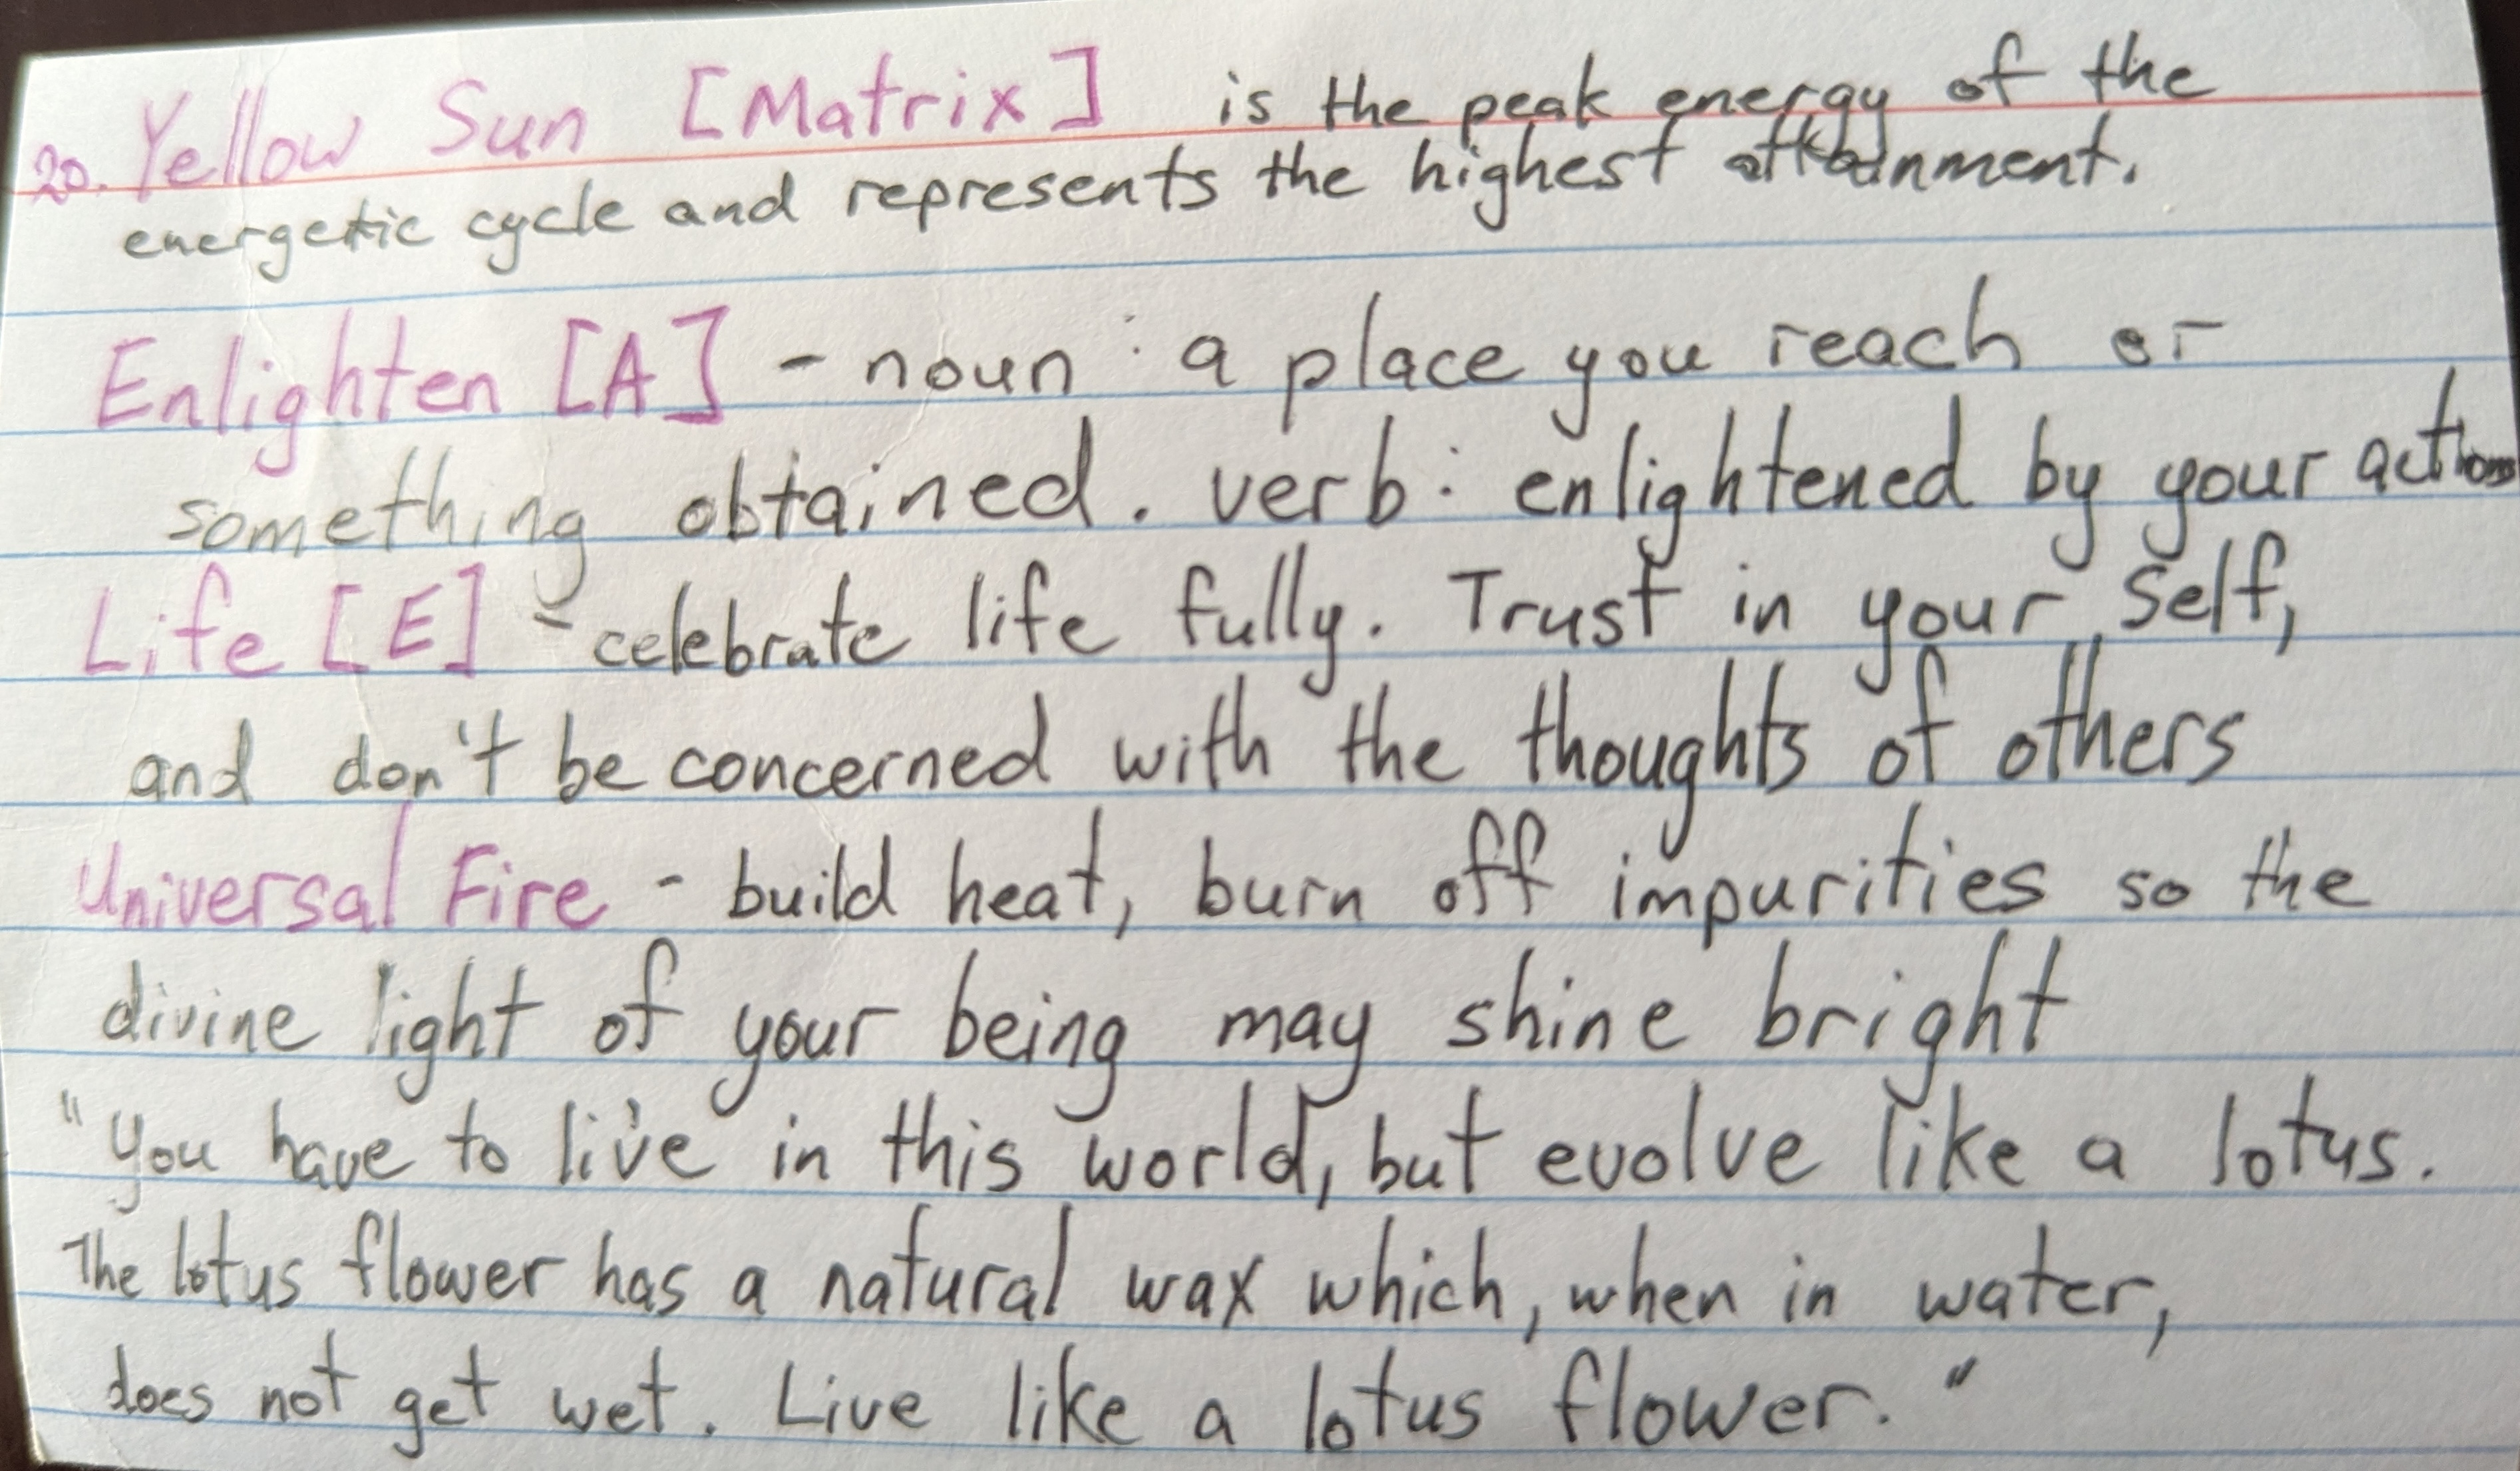 20. Yellow Sun [Matrix] is the peak energy of the
energetic cycle and represents the highest attainment.
Enlighten [A] - noun: a place you reach or
something obtained. verb: enlightened by your actions
Life [E] - celebrate life fully. Trust in your Self,
and don't be concerned with the thoughts of others
Universal Fire - build heat, burn off impurities so the
divine light of your being may shine bright
"You have to live in this world, but evolve like a lotus.
The lotus flower has a natural wax which, when in water,
does not get wet. Live like a lotus flower."